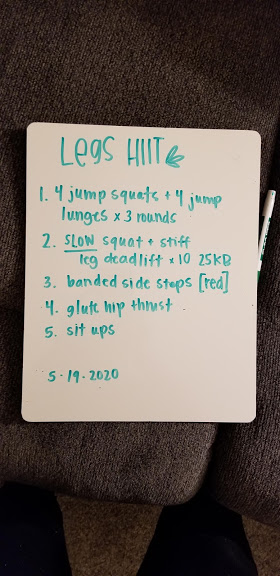 Legs HIIT
1. 4 jump squats + 4 jump
lunges x 3 rounds
2. SLOW squat + stiff
leg deadlift x 10 25KB
3. banded side steps [red]
4. glute hip thrust
5. sit ups
5-19-2020